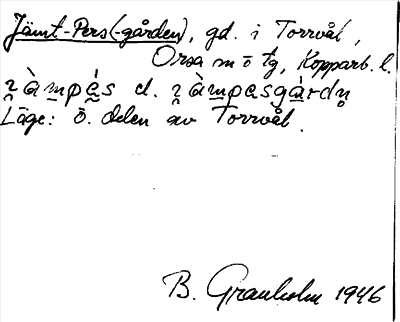 Jämt-Pers(-gården), gd. i Torrvål,
Orsa sn o tg, Kopparb. l.
i̯àm̲pə̲́s el. i̯àm̲pəsgá̲rdn̥
Läge: ö. delen av Torrvål.
B. Granholm 1946